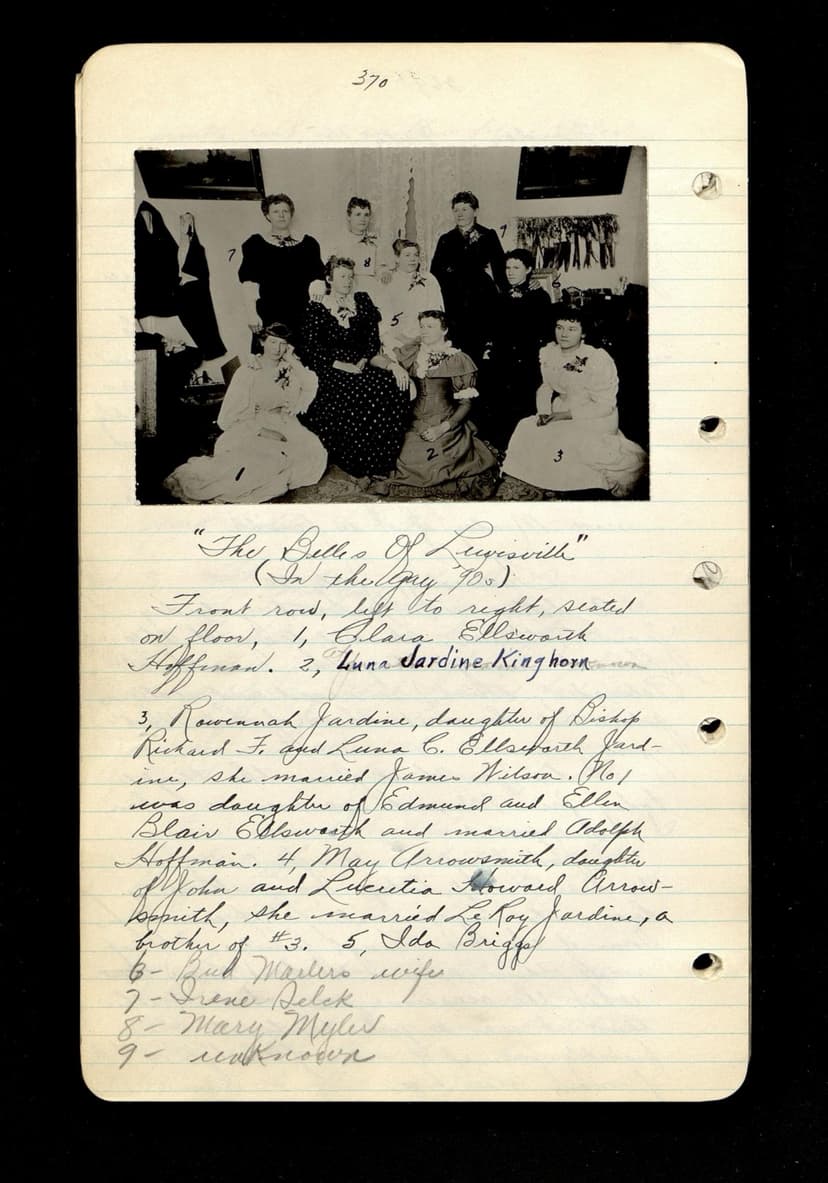 370
7
8
9
5
6
1
2
3
"The Belles Of Lewisville"
(In the Gay '90s)
Front row, left to right, seated
on floor, 1, Clara Ellsworth
Hoffman. 2, Luna Jardine Kinghorn
3, Rowennah Jardine, daughter of Bishop
Richard F. and Luna C. Ellsworth Jard-
ine, she married James Wilson. No 1
was daughter of Edmund and Ellen
Blair Ellsworth and married Adolph
Hoffman. 4, May Arrowsmith, daughter
of John and Lucretia Howard Arrow-
smith, she married LeRoy Jardine, a
brother of #3. 5, Ida Briggs
6- Bud Marlers wife
7- Irene Selck
8- Mary Myler
9- unknown